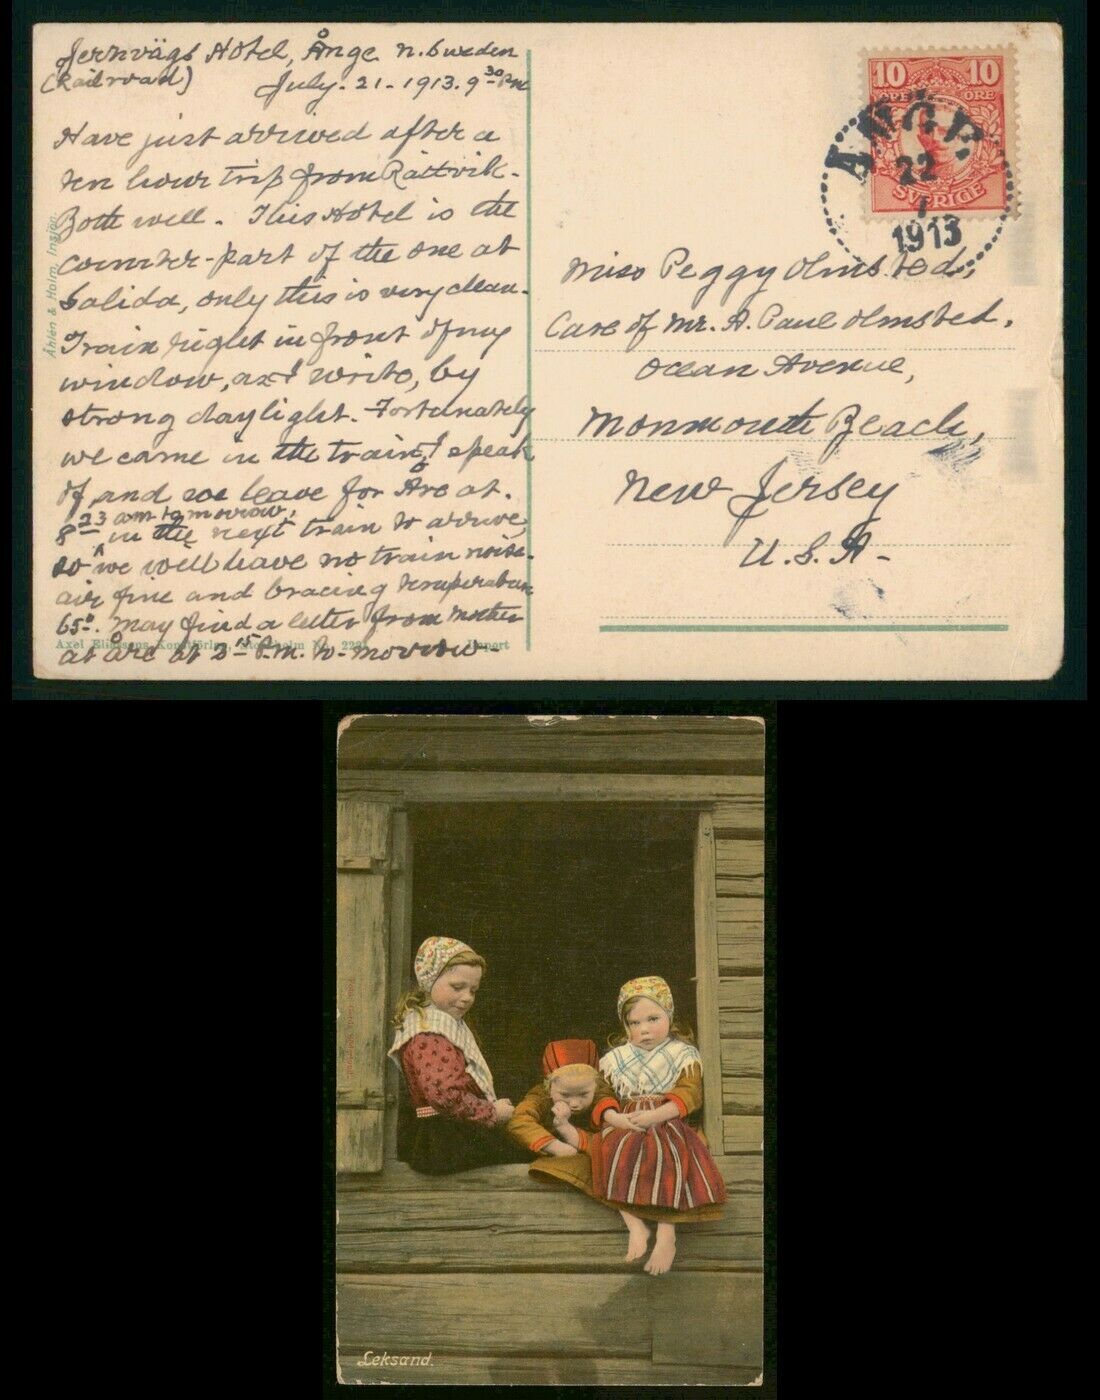 Jernvägs Hotel, Ånge N. Sweden
(Railroad) July. 21 - 1913. 9 30 PM
Have just arrived after a
ten hour trip from Rättvik.
Both well. This Hotel is the
counter-part of the one at
Salida, only this is very clean.
Train right in front of my
window, as I write, by
strong daylight. Fortunately
we came in the train, I speak
of, and we leave for Åre at.
8 23 am tomorrow,
in the next train to arrive,
so we will have no train noise.
air fine and bracing temperature
65°. May find a letter from Mother
at åre at 2 15 P.M. to-morrow-
Åhlén & Holm, Insjön
Axel Eliassons Konstförlag, Stockholm N:
10 10
ÖRE ÖRE
SVERIGE
ÅNGE
22
7
1913
Miss Peggy Olmsted,
Care of Mr. A. Paul Olmsted.
Ocean Avenue,
Monmouth Beach,
New Jersey
U.S.A-
Leksand.